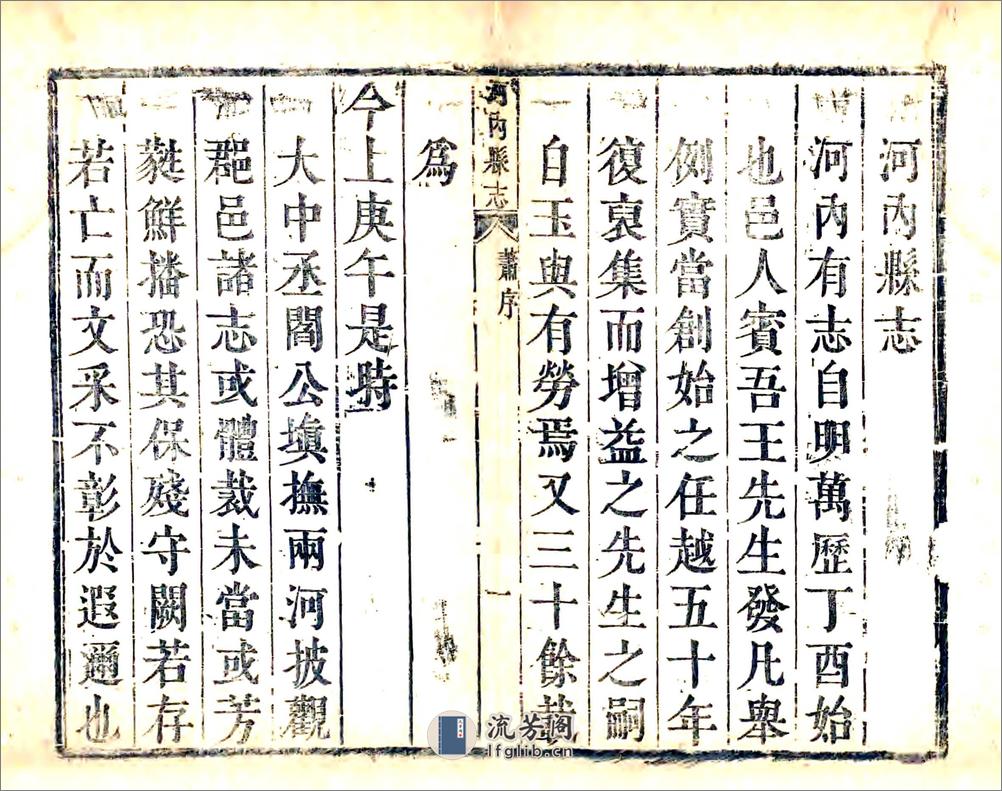 河內縣志
河內有志自明萬歷丁酉始
也邑人賓吾王先生發凡舉
例實當創始之任越五十年
復裒集而增益之先生之嗣
白玉與有勞焉又三十餘載
河內縣志 蕭序 一
爲
今上庚午是時
大中丞閻公塡撫兩河披觀
郡邑諸志或體裁未當或芳
蕤鮮播恐其保殘守闕若存
若亡而文采不彰於遐邇也
流芳阁
lfglib.cn